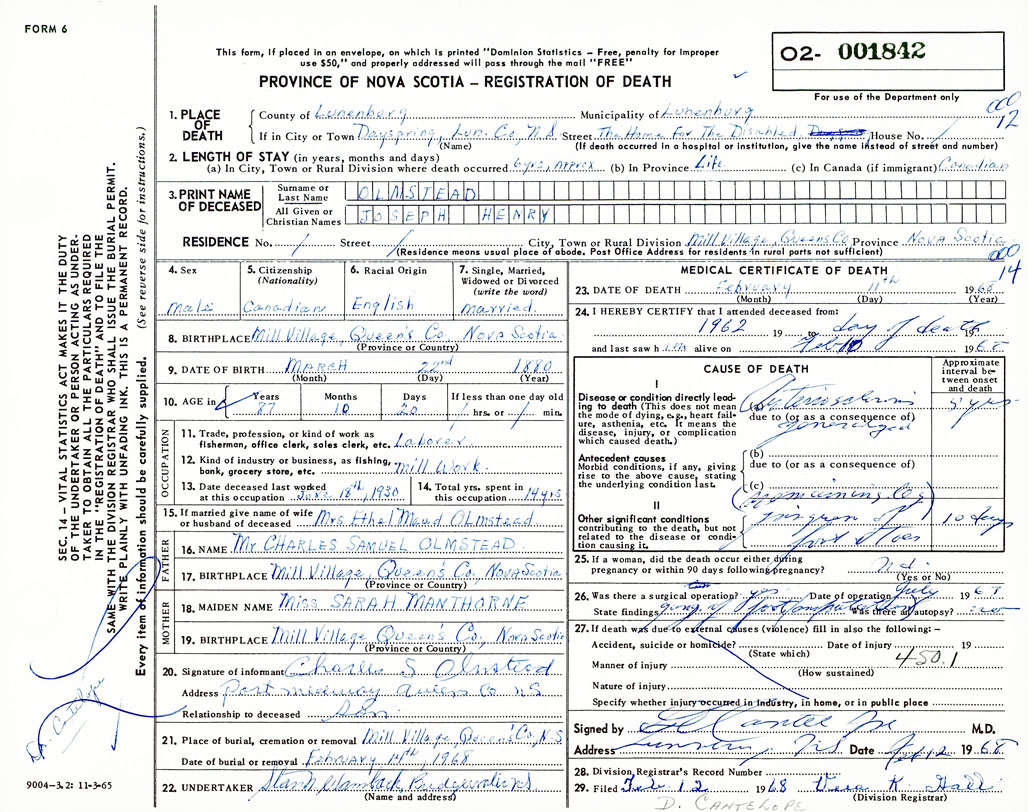 FORM 6
This form, if placed in an envelope, on which is printed "Dominion Statistics – Free, penalty for improper
use $50," and properly addressed will pass through the mail "FREE"
PROVINCE OF NOVA SCOTIA – REGISTRATION OF DEATH
O2- 001842
For use of the Department only
000
12
1. PLACE OF DEATH
County of Lunenburg Municipality of Lunenburg
If in City or Town Dayspring, Lun. Co, N.S. Street The Home For The Disabled, House No. /
(Name) (If death occurred in a hospital or institution, give the name instead of street and number)
2. LENGTH OF STAY (in years, months and days)
(a) In City, Town or Rural Division where death occurred 6 yrs, Approx (b) In Province Life (c) In Canada (if immigrant) Canadian
3. PRINT NAME OF DECEASED
Surname or Last Name OLMSTEAD
All Given or Christian Names JOSEPH HENRY
RESIDENCE No. / Street / City, Town or Rural Division Mill Village, Queens Co Province Nova Scotia
(Residence means usual place of abode. Post Office Address for residents in rural parts not sufficient)
000
14
4. Sex Male
5. Citizenship (Nationality) Canadian
6. Racial Origin English
7. Single, Married, Widowed or Divorced (write the word) Married.
8. BIRTHPLACE Mill Village, Queen's Co, Nova Scotia
(Province or Country)
9. DATE OF BIRTH MARCH 22nd 1880
(Month) (Day) (Year)
10. AGE in Years 87 Months 10 Days 20 If less than one day old / hrs. or / min.
OCCUPATION
11. Trade, profession, or kind of work as fisherman, office clerk, sales clerk, etc. Laborer
12. Kind of industry or business, as fishing, bank, grocery store, etc. Mill Work.
13. Date deceased last worked at this occupation June 18th, 1930
14. Total yrs. spent in this occupation 14 yrs
15. If married give name of wife or husband of deceased Mrs Ethel Maud Olmstead
FATHER
16. NAME Mr CHARLES SAMUEL OLMSTEAD
17. BIRTHPLACE Mill Village, Queen's Co, Nova Scotia
(Province or Country)
MOTHER
18. MAIDEN NAME Miss SARAH MANTHORNE
19. BIRTHPLACE Mill Village Queen's Co, Nova Scotia
(Province or Country)
20. Signature of informant Charles S Olmstead
Address Port Midway Queens Co NS
Relationship to deceased Son
21. Place of burial, cremation or removal Mill Village Queens' Co, N.S
Date of burial or removal February 14th, 1968
22. UNDERTAKER Bridgewater NS
(Name and address)
MEDICAL CERTIFICATE OF DEATH
23. DATE OF DEATH February 11th 1968
(Month) (Day) (Year)
24. I HEREBY CERTIFY that I attended deceased from:
1962 19 to day of death 19
and last saw him alive on Feb 10 1968
CAUSE OF DEATH
Approximate interval between onset and death
I
Disease or condition directly leading to death (This does not mean the mode of dying, e.g., heart failure, asthenia, etc. It means the disease, injury, or complication which caused death.)
(a) Arteriosclerosis 5 yrs
due to (or as a consequence of)
generalized
Antecedent causes
Morbid conditions, if any, giving rise to the above cause, stating the underlying condition last.
(b)
due to (or as a consequence of)
(c)
II
Other significant conditions contributing to the death, but not related to the disease or condition causing it.
(remaining leg)
gangrene of 10 days
foot & toes
25. If a woman, did the death occur either during pregnancy or within 90 days following pregnancy?
(Yes or No)
26. Was there a surgical operation? yes Date of operation July 1967
State findings gang of foot Was there an autopsy?
27. If death was due to external causes (violence) fill in also the following: –
Accident, suicide or homicide? Date of injury 19
(State which)
450.1
Manner of injury
(How sustained)
Nature of injury
Specify whether injury occurred in industry, in home, or in public place
Signed by M.D.
Address N.S. Date Feb 12 1968
28. Division Registrar's Record Number
29. Filed Feb. 12 1968 Vera K Hall
(Division Registrar)
D. CANTELOPE
SEC. 14 – VITAL STATISTICS ACT MAKES IT THE DUTY
OF THE UNDERTAKER OR PERSON ACTING AS UNDER-
TAKER TO OBTAIN ALL THE PARTICULARS REQUIRED
IN THE "REGISTRATION OF DEATH" AND TO FILE THE
SAME WITH THE DIVISION REGISTRAR WHO SHALL ISSUE THE BURIAL PERMIT.
WRITE PLAINLY WITH UNFADING INK. THIS IS A PERMANENT RECORD.
Every item of information should be carefully supplied. (See reverse side for instructions.)
Dr. Cantelope
9004-3.2: 11-3-65